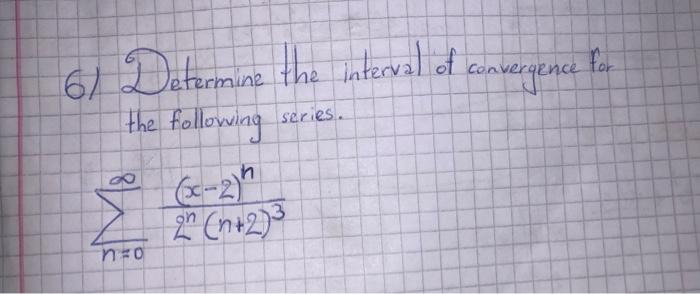 6) Determine the interval of convergence for
the following series.
∞
∑ (x-2)ⁿ / 2ⁿ (n+2)³
n=0